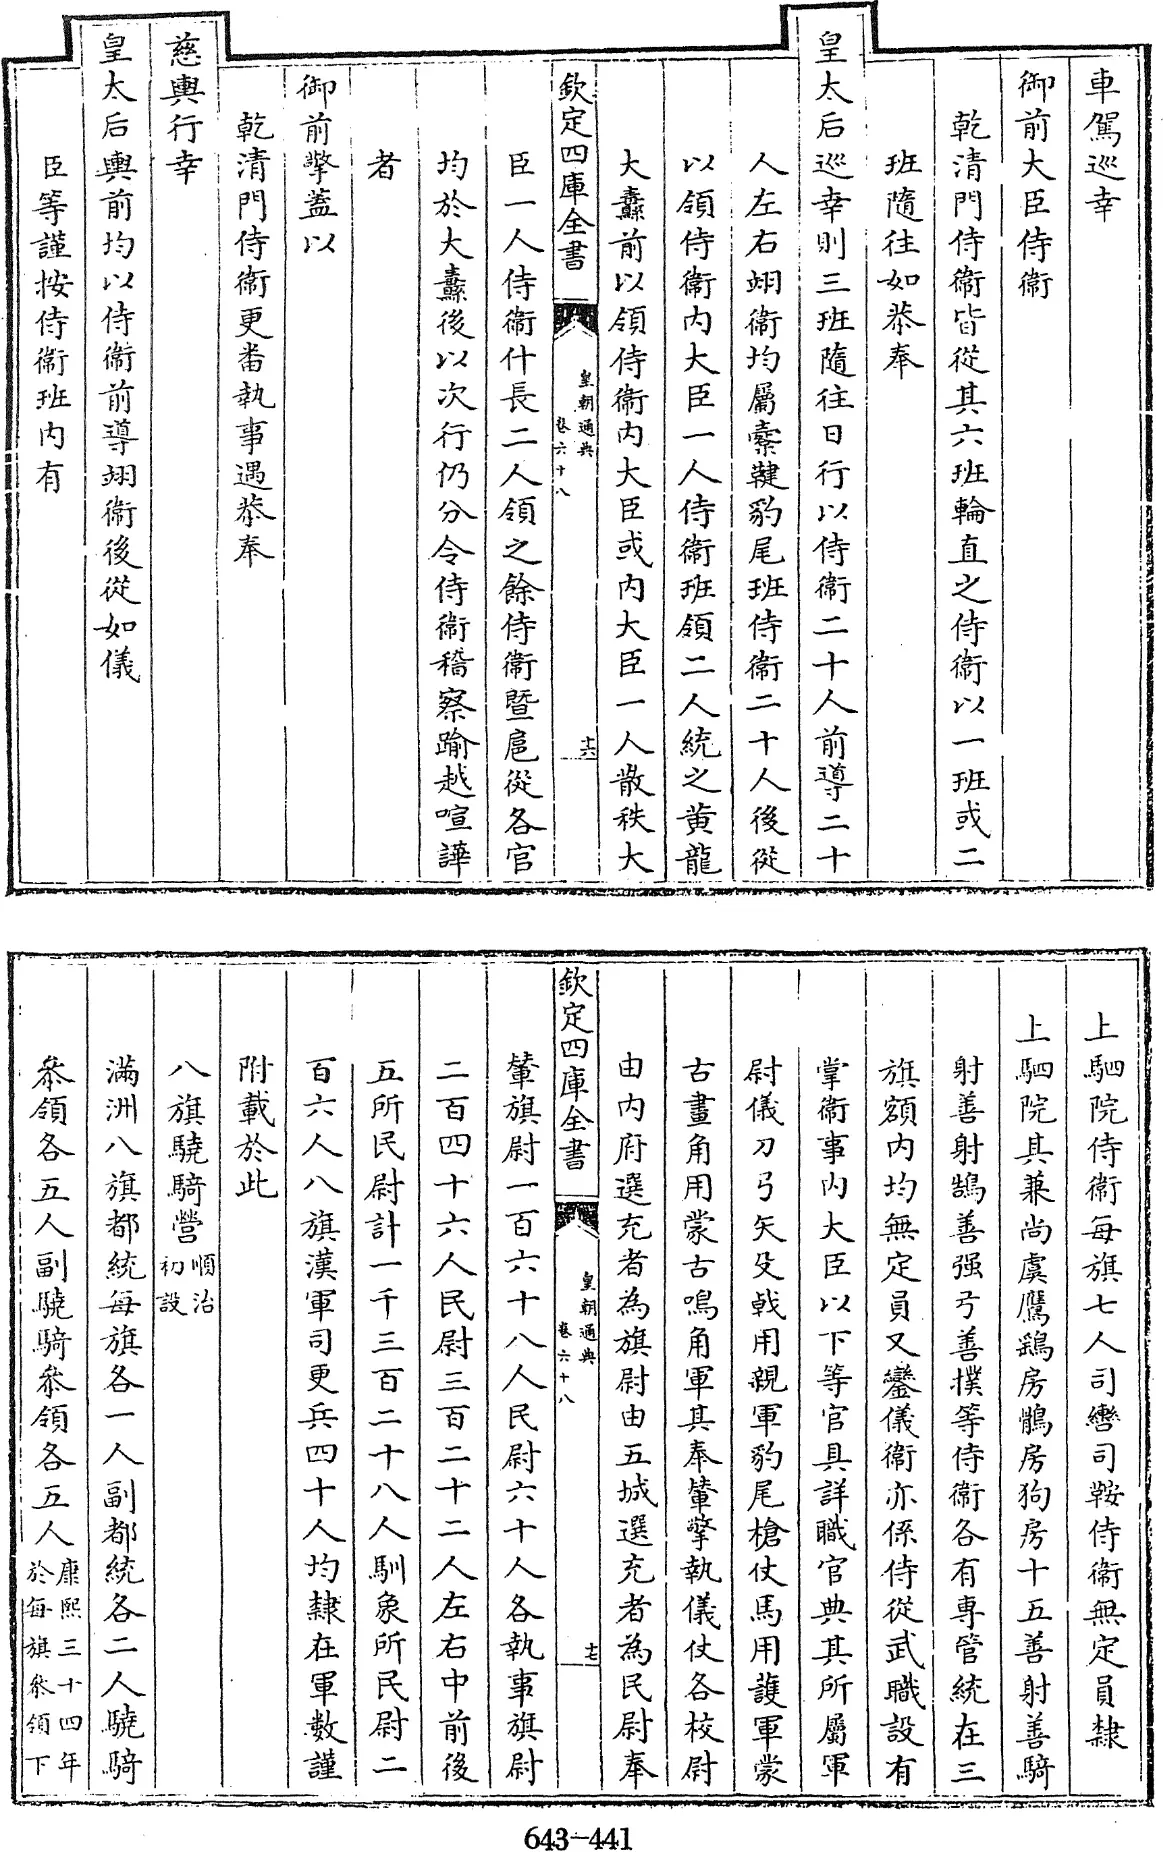 車駕巡幸
御前大臣侍衛
乾清門侍衛皆從其六班輪直之侍衛以一班或二
班隨往如恭奉
皇太后巡幸則三班隨往日行以侍衛二十人前導二十
人左右翊衛均屬櫜鞬豹尾班侍衛二十人後從
以領侍衛内大臣一人侍衛班領二人統之黄龍
大纛前以領侍衛内大臣或内大臣一人散秩大
欽定四庫全書
皇朝通典
卷六十八
十六
臣一人侍衛什長二人領之餘侍衛暨扈從各官
均於大纛後以次行仍分令侍衛稽察踰越喧譁
者
御前擎蓋以
乾清門侍衛更畨執事遇恭奉
慈輿行幸
皇太后輿前均以侍衛前導翊衛後從如儀
臣等謹按侍衛班内有
上駟院侍衛每旗七人司轡司鞍侍衛無定員隸
上駟院其兼尚虞鷹鷂房鶻房狗房十五善射善騎
射善射鵠善强弓善撲等侍衛各有專管統在三
旗額内均無定員又鑾儀衛亦係侍從武職設有
掌衛事内大臣以下等官具詳職官典其所屬軍
尉儀刀弓矢殳戟用親軍豹尾槍仗馬用護軍蒙
古畫角用蒙古鳴角軍其奉輦擎執儀仗各校尉
由内府選充者為旗尉由五城選充者為民尉奉
欽定四庫全書
皇朝通典
卷六十八
十七
輦旗尉一百六十八人民尉六十人各執事旗尉
二百四十六人民尉三百二十二人左右中前後
五所民尉計一千三百二十八人馴象所民尉二
百六人八旗漢軍司更兵四十人均隸在軍數謹
附載於此
八旗驍騎營順治初設
滿洲八旗都統每旗各一人副都統各二人驍騎
叅領各五人副驍騎叅領各五人康熙三十四年於每旗叅領下
643-441